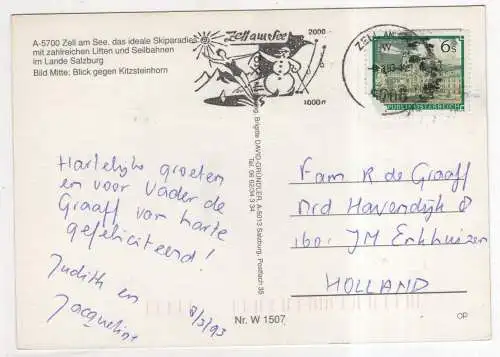 A-5700 Zell am See, das ideale Skiparadies
mit zahlreichen Liften und Seilbahnen
im Lande Salzburg
Bild Mitte: Blick gegen Kitzsteinhorn
Zell am See
2000
1000
ZELL AM
6s
REPUBLIK ÖSTERREICH
Hartelijke groeten
en voor Vader de
Graaff van harte
gefeliciteerd!
Judith en
Jacqueline
8/3/93
Brigitte DAVID-GRÜNDLER, A-5013 Salzburg, Postfach 35
Fam R de Graaff
Nrd Havendijk 8
1601 JM Enkhuizen
HOLLAND
Nr. W 1507
OP